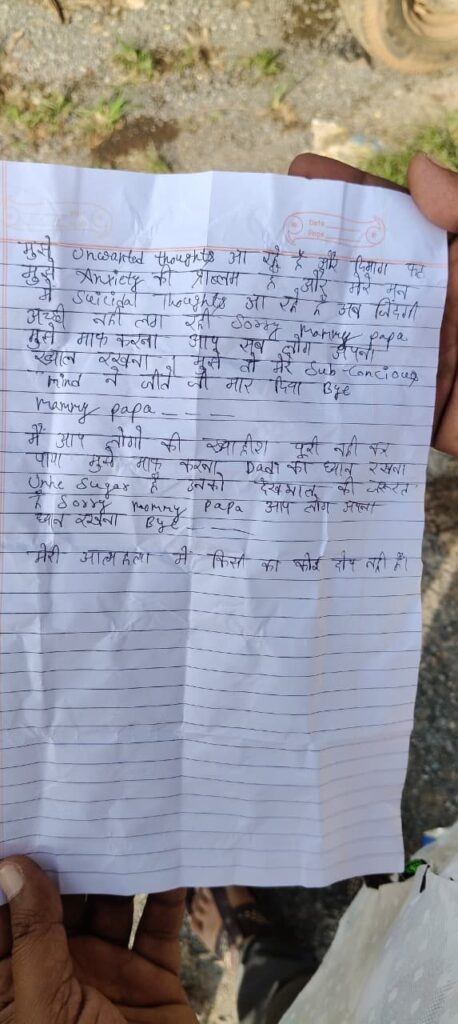 Date
Page
मुझे Unwanted thoughts आ रहे है और दिमाग फट
मुझे Anxiety की प्राब्लम है और मेरे मन
में Suicidal thoughts आ रहे है अब जिंदगी
अच्छी नही लग रही Sorry mommy papa
मुझे माफ करना आप सब लोग अपना
ख्याल रखना। मुझे तो मेरे Sub-Concious
mind ने जीते जी मार दिया Bye
mammy papa - - -
मैं आप लोगो की ख्वाहिश पूरी नही कर
पाया मुझे माफ करना Dadi का ध्यान रखना
Unhe Sugar है उनको देखभाल की जरूरत
है Sorry mommy papa आप लोग अपना
ध्यान रखना Bye - - -
मेरी आत्महत्या में किसी का कोई दोष नही है।